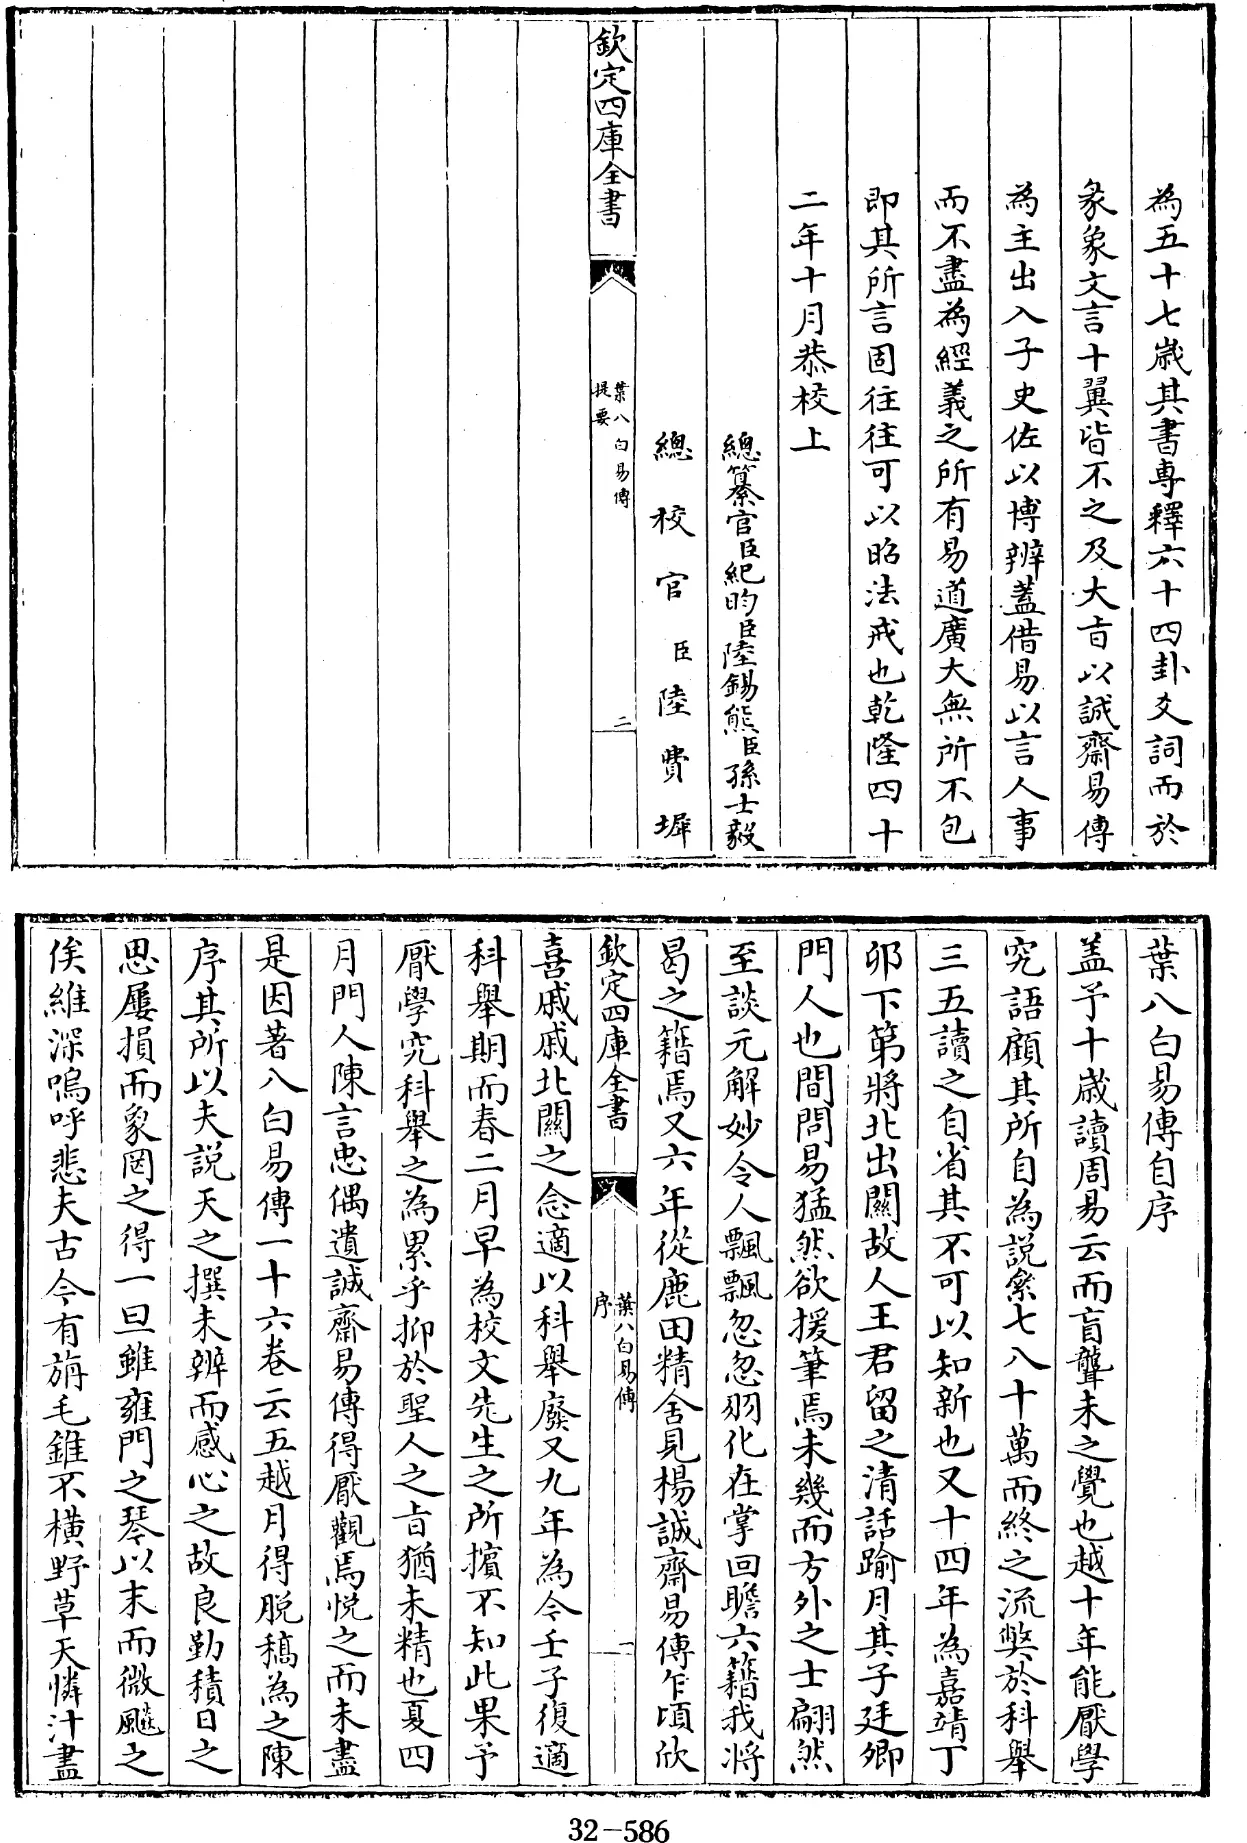 為五十七歲其書專釋六十四卦爻詞而於
彖象文言十翼皆不之及大旨以誠齋易傳
為主出入子史佐以博辨蓋借易以言人事
而不盡為經義之所有易道廣大無所不包
即其所言固往往可以昭法戒也乾隆四十
二年十月恭校上
總纂官臣紀昀臣陸錫熊臣孫士毅
總校官臣陸費墀
欽定四庫全書
葉八白易傳
提要
二
葉八白易傳自序
盖予十歲讀周易云而盲聾未之覺也越十年能厭學
究語顧其所自為説絫七八十萬而終之流獘於科舉
三五讀之自省其不可以知新也又十四年為嘉靖丁
夘下第將北出關故人王君留之清話踰月其子廷卿
門人也間問易猛然欲援筆焉未幾而方外之士翩然
至談元解妙令人飄飄忽忽羽化在掌回瞻六籍我將
曷之籍焉又六年從鹿田精舍見楊誠齋易傳乍頃欣
欽定四庫全書
葉八白易傳
序
一
喜戚戚北闗之念適以科舉廢又九年為令壬子復適
科舉期而春二月早為校文先生之所擯不知此果予
厭學究科舉之為累乎抑於聖人之旨猶未精也夏四
月門人陳言忠偶遺誠齋易傳得厭觀焉悦之而未盡
是因著八白易傳一十六卷云五越月得脱稿為之陳
序其所以夫説天之撰未辨而感心之故良勤積日之
思屢損而象罔之得一旦雖雍門之琴以末而微飈之
俟維深嗚呼悲夫古今有旃毛錐不横野草天憐汁盡
32-586